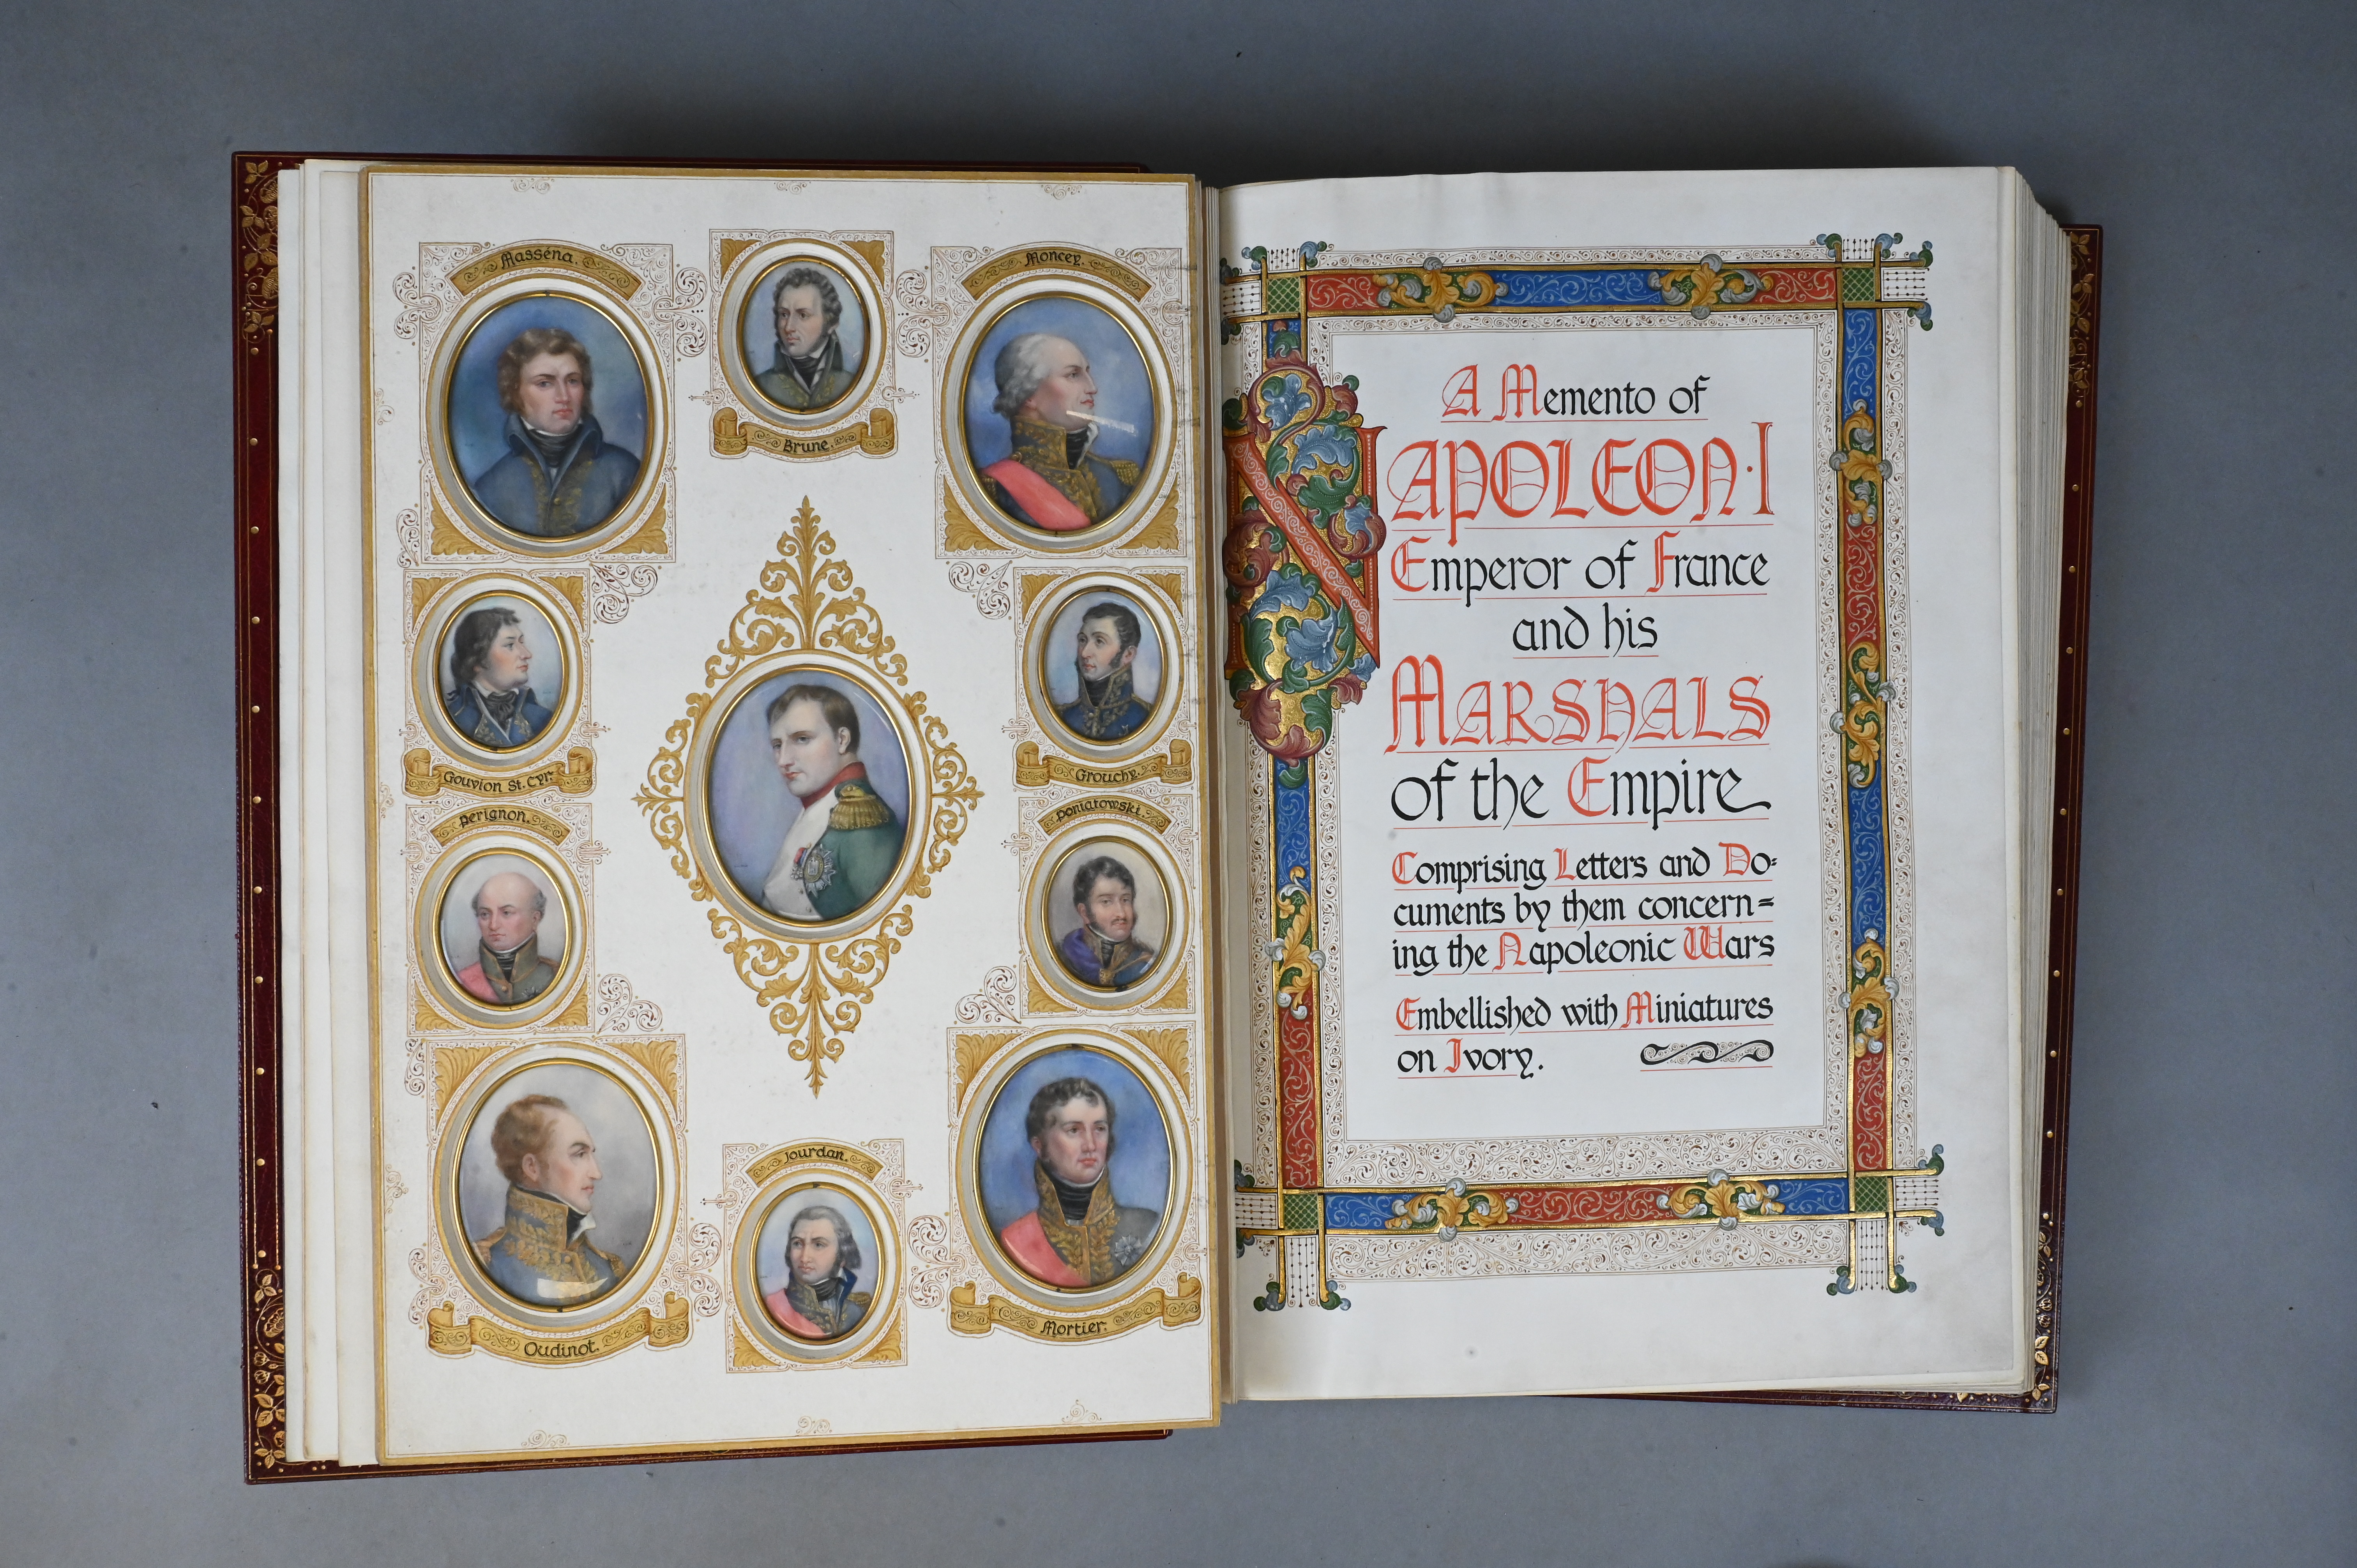 Masséna.
Brune.
Moncey.
Gouvion St. Cyr.
Grouchy.
Perignon.
Poniatowski.
Oudinot.
Jourdan.
Mortier.
A Memento of
NAPOLEON·I
Emperor of France
and his
MARSHALS
of the Empire
Comprising Letters and Do=
cuments by them concern=
ing the Napoleonic Wars
Embellished with Miniatures
on Ivory.